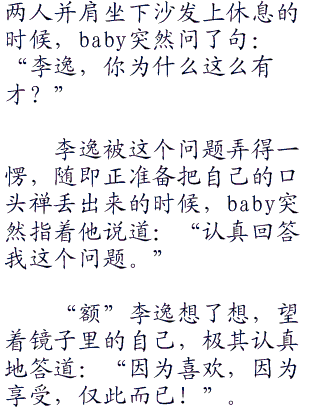 两人并肩坐下沙发上休息的
时候，baby突然问了句：
“李逸，你为什么这么有
才？”
李逸被这个问题弄得一
愣，随即正准备把自己的口
头禅丢出来的时候，baby突
然指着他说道：“认真回答
我这个问题。”
“额”李逸想了想，望
着镜子里的自己，极其认真
地答道：“因为喜欢，因为
享受，仅此而已！”。